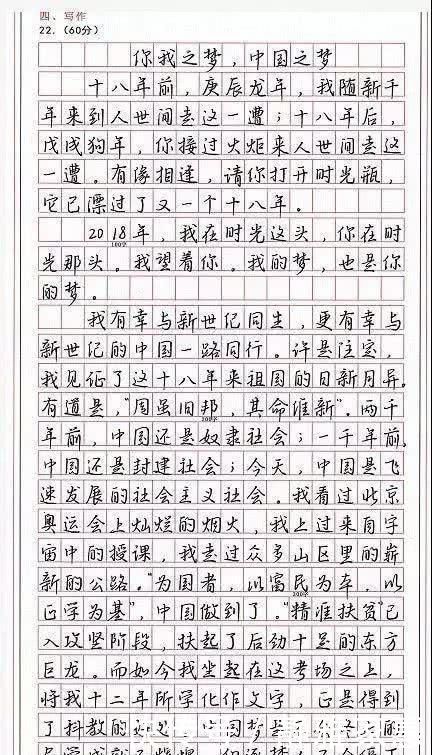 四、写作
22.（60分）
你我之梦，中国之梦
十八年前，庚辰龙年，我随新千
年来到人世间去这一遭；十八年后，
戊戌狗年，你接过火炬来人世间去这
一遭。有缘相逢，请你打开时光瓶，
它已漂过了又一个十八年。
2018年，我在时光这头，你在时
100字
光那头。我望着你。我的梦，也是你
的梦。
我有幸与新世纪同生，更有幸与
新世纪的中国一路同行。许是注定，
我见证了这十八年来祖国的日新月异。
有道是，“周虽旧邦，其命维新”。两千
200字
年前，中国还是奴隶社会；一千年前，
中国还是封建社会；今天，中国是飞
速发展的社会主义社会。我看过北京
奥运会上灿烂的烟火，我上过来自宇
宙中的授课，我走过众多山区里的崭
新的公路。“为国者，以富民为车，以
300字
正学为基”，中国做到了。“精准扶贫”已
入攻坚阶段，扶起了后劲十足的东方
巨龙。而如今我坐起在这考场之上，
将我十二年所学化作文字，正是得到
了科教的